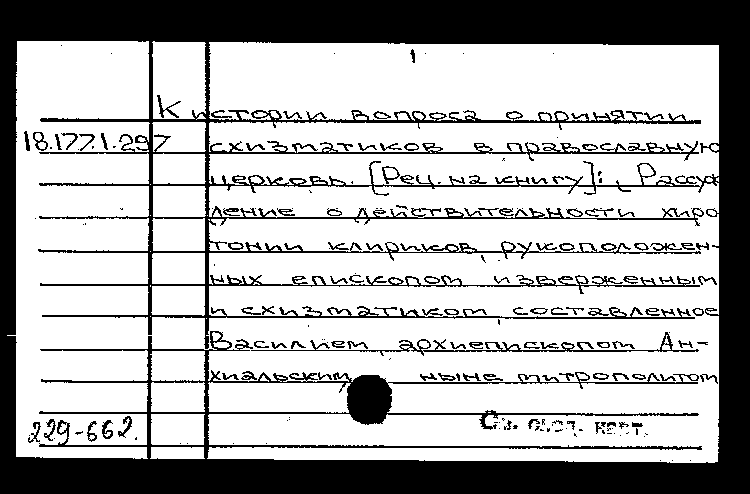 1
К истории вопроса о принятии
18.177.1.297 схизматиков в православную
церковь. [Рец. на книгу]: Рассуж
дение о действительности хиро
тонии клириков, рукоположен-
ных епископом изверженным
и схизматиком, составленное
Василием, архиепископом Ан-
хиальским, ныне митрополитом
229-662.
См. след. карт.